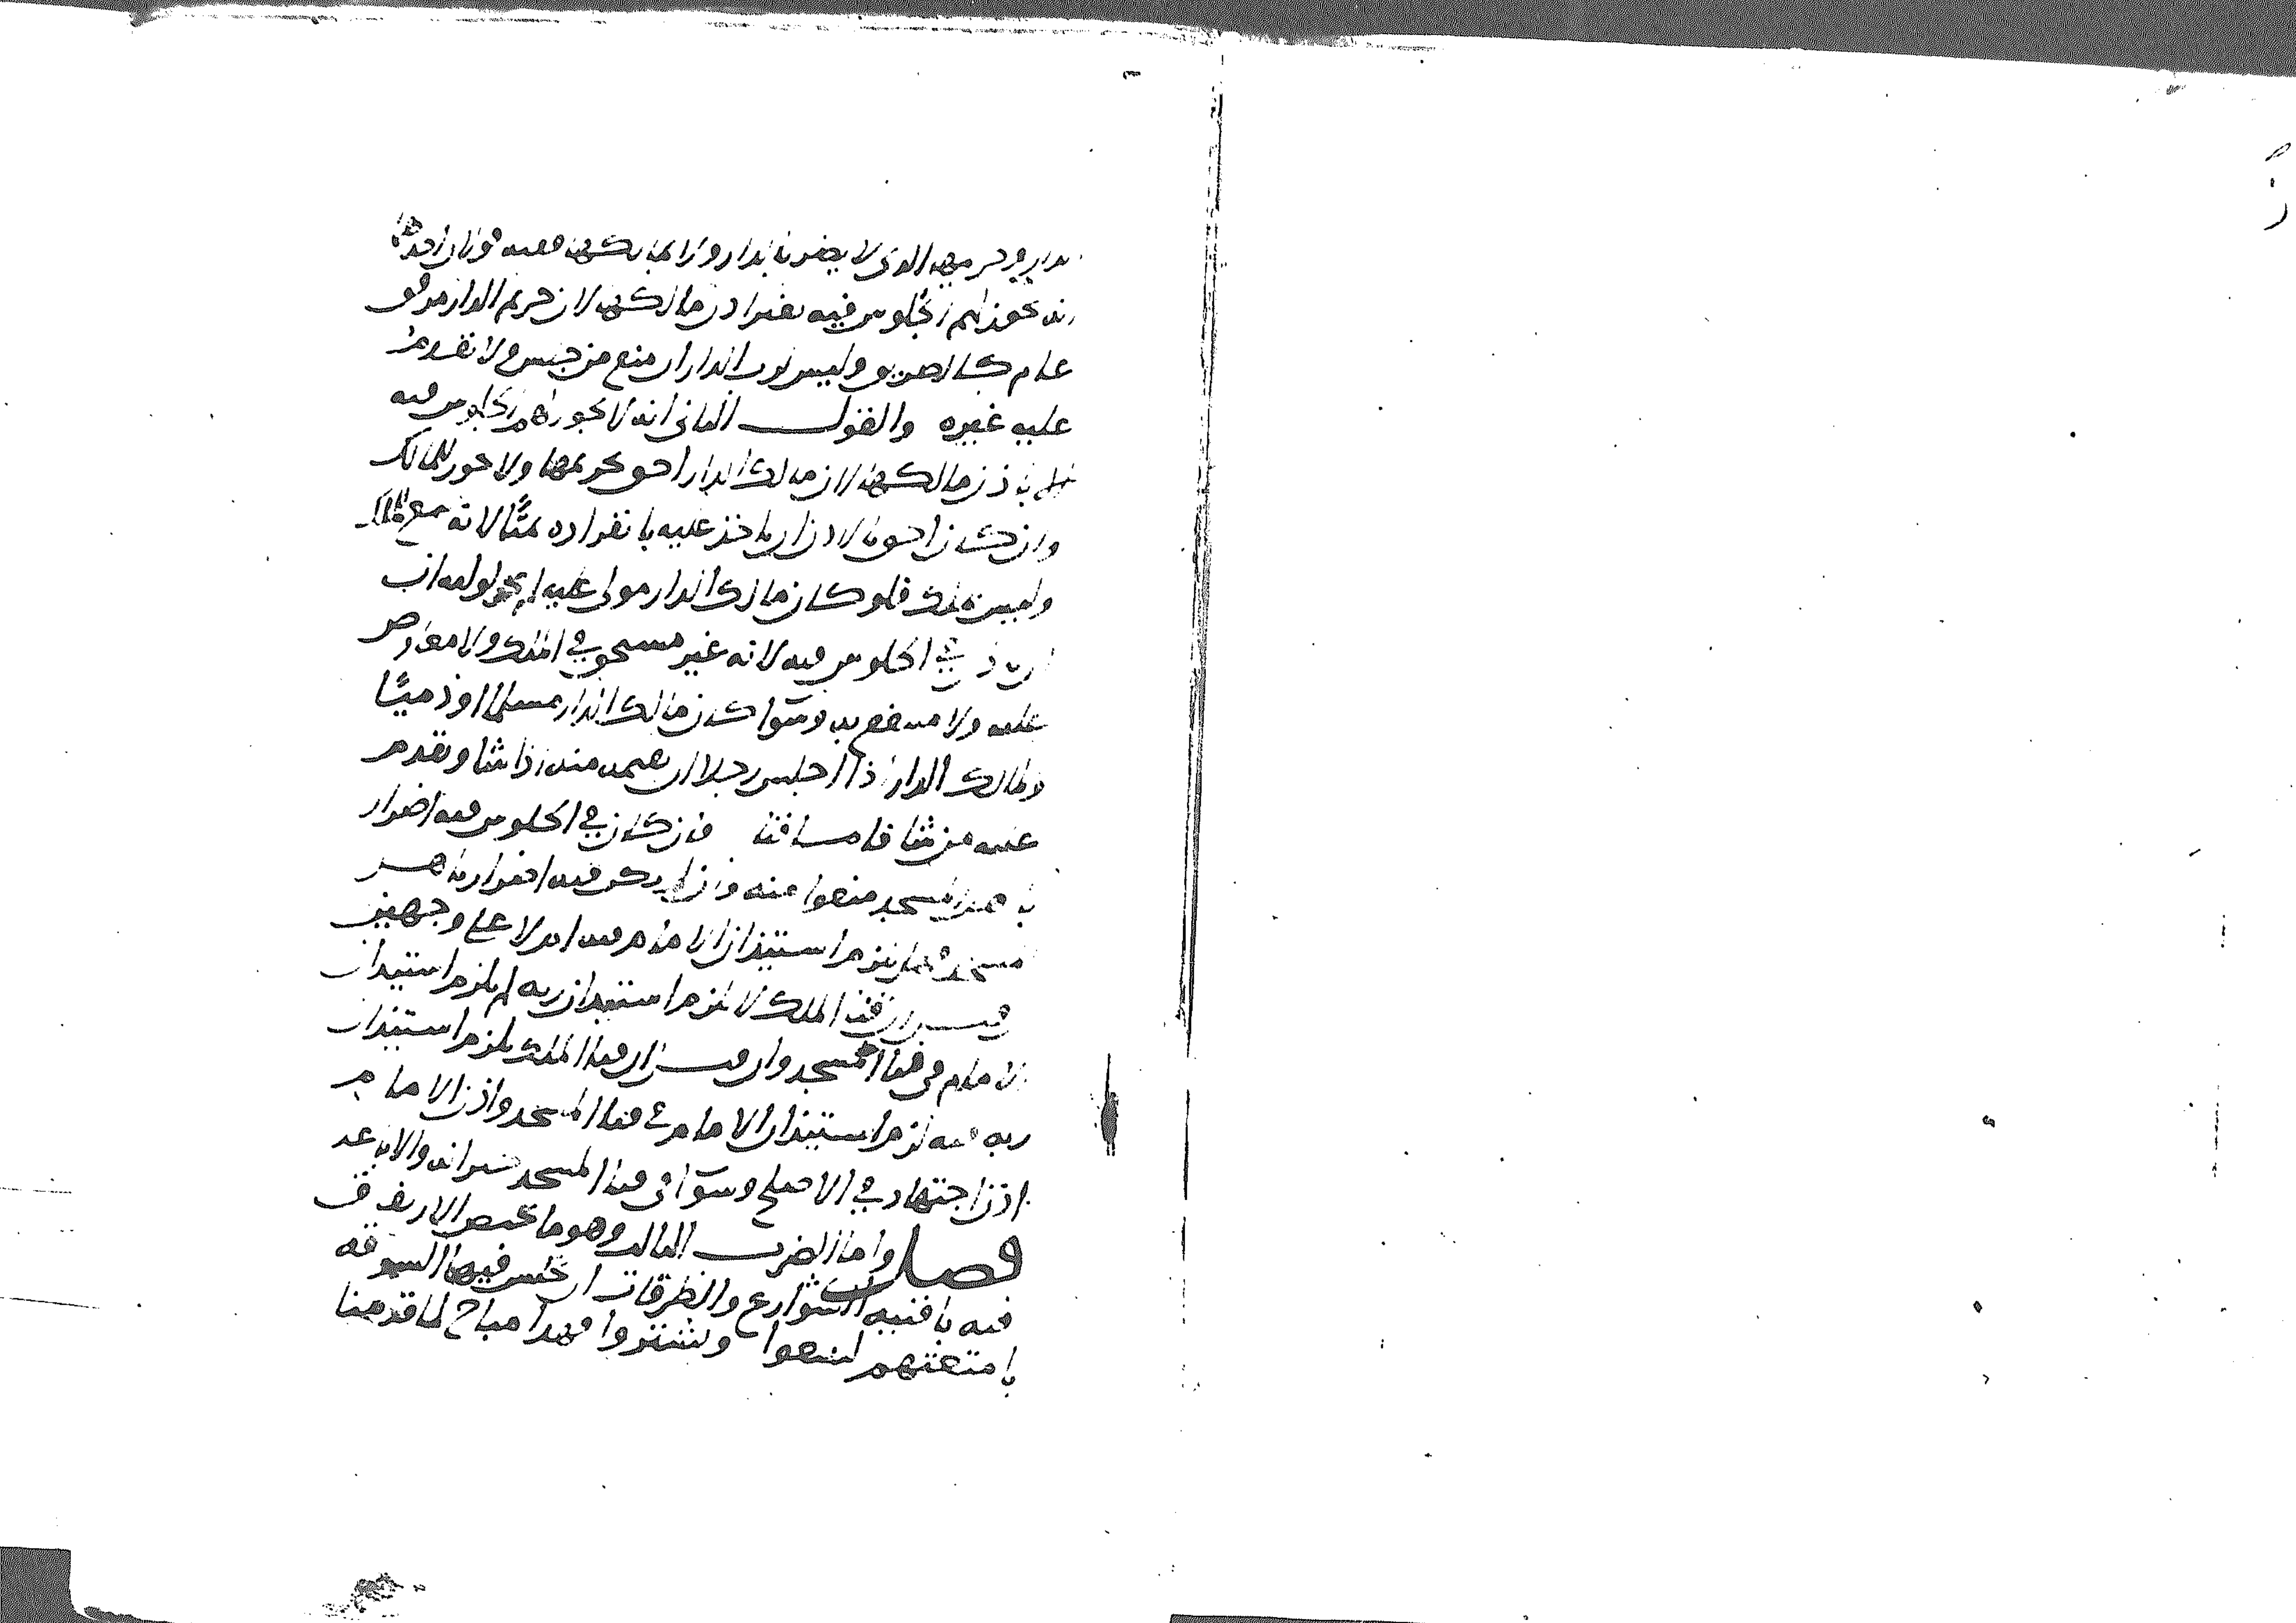 الدار وحريمها الذي لا يضر بالدار ولا بمالكها ففيه قولان احدهما
انه يجوز لهم الجلوس فيه بغير اذن مالكها لان حريم الدار مرفق
عام كالطريق وليس لرب الدار ان يمنع من جلس ولا يقدم
عليه غيره والقول الثاني انه لا يجوز لهم الجلوس فيه
الا باذن مالكها لان مالك الدار احق بحريمها ولا يجوز للمالك
وان كان احق بالاذن ان ياخذ عليه بانفراده ثمنا لانه تبع للملك
وليس بملك فلو كان مالك الدار مولى عليه لم يجز لوليه ان
ياذن في الجلوس فيه لانه غير مستحق في الملك ولا معاوض
عليه ولا منتفع به وسوا كان مالك الدار مسلما او ذميا
ولمالك الدار اذا اجلس رجلا ان يقيمه منه اذا شا ويقدم
عليه من شا فاما فنا فان كان في الجلوس فيه اضرار
باهل المسجد منعوا منه وان لم يكن فيه اضرار باهل
المسجد فهل يلزم استيذان الامام فيه ام لا على وجهين
ان فنا الملك لا يلزم استيذان ربه لم يلزم استيذان
الامام في فنا المسجد وان قيل ان فنا الملك يلزم استيذان
ربه فيه لزم استيذان الامام في فنا المسجد واذن الامام
اذن اجتهاد في الاصلح وسوا في فنا المسجد جيرانه والاباعد
فصل واما الضرب الثالث وهو ما يختص الارتفاق
فيه بافنيه الشوارع والطرقات ان يجلس فيها السوقه
بامتعتهم ليبيعوا ويشتروا فهذا مباح لما قدمنا